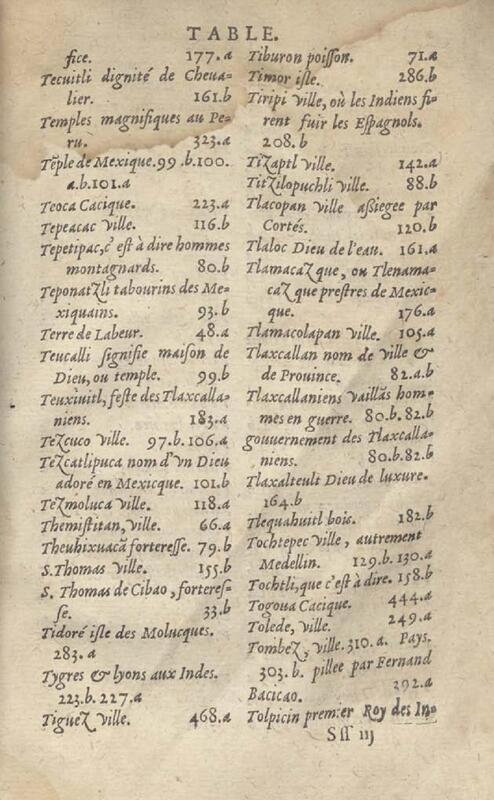 TABLE.
fice. 177.a
Tecuitli dignité de Cheua-
lier. 161.b
Temples magnifiques au Pe-
ru. 323.a
Tẽple de Mexique. 99.b.100.
a.b.101.a
Teoca Cacique. 223.a
Tepeacac ville. 116.b
Tepetipac, c'est à dire hommes
montagnards. 80.b
Teponatzli tabourins des Me-
xiquains. 93.b
Terre de Labeur. 48.a
Teucalli signifie maison de
Dieu, ou temple. 99.b
Teuxiuitl, feste des Tlaxcalla-
niens. 183.a
Tezcuco ville. 97.b.106.a
Tezcatlipuca nom d'vn Dieu
adoré en Mexique. 101.b
Tezmoluca ville. 118.a
Themistitan, ville. 66.a
Theuhixuacã forteresse. 79.b
S. Thomas ville. 155.b
S. Thomas de Cibao, forteres-
se. 33.b
Tidoré isle des Molucques.
283.a
Tygres & lyons aux Indes.
223.b. 227.a
Tiguez ville. 468.a
Tiburon poisson. 71.a
Timor isle. 286.b
Tiripi ville, où les Indiens fi-
rent fuir les Espagnols.
208.b
Tizaptl ville. 142.a
Titzilopuchli ville. 88.b
Tlacopan ville assiegee par
Cortés. 120.b
Tlaloc Dieu de l'eau. 161.a
Tlamacaz que, ou Tlenama-
caz que prestres de Mexic-
que. 176.a
Tlamacolapan ville. 105.a
Tlaxcallan nom de ville &
de Prouince. 82.a.b
Tlaxcallaniens vaillãs hom-
mes en guerre. 80.b.82.b
gouuernement des Tlaxcalla-
niens. 80.b.82.b
Tlaxalteult Dieu de luxure.
164.b
Tlequahuitl bois. 182.b
Tochtepec ville, autrement
Medellin. 129.b.130.a
Tochtli, que c'est à dire. 158.b
Togoua Cacique. 444.a
Tolede, ville. 249.a
Tombez, ville. 310.a. Pays.
303.b. pillee par Fernand
Bacicao. 392.a
Tolpicin premier Roy des In-
Sss iij